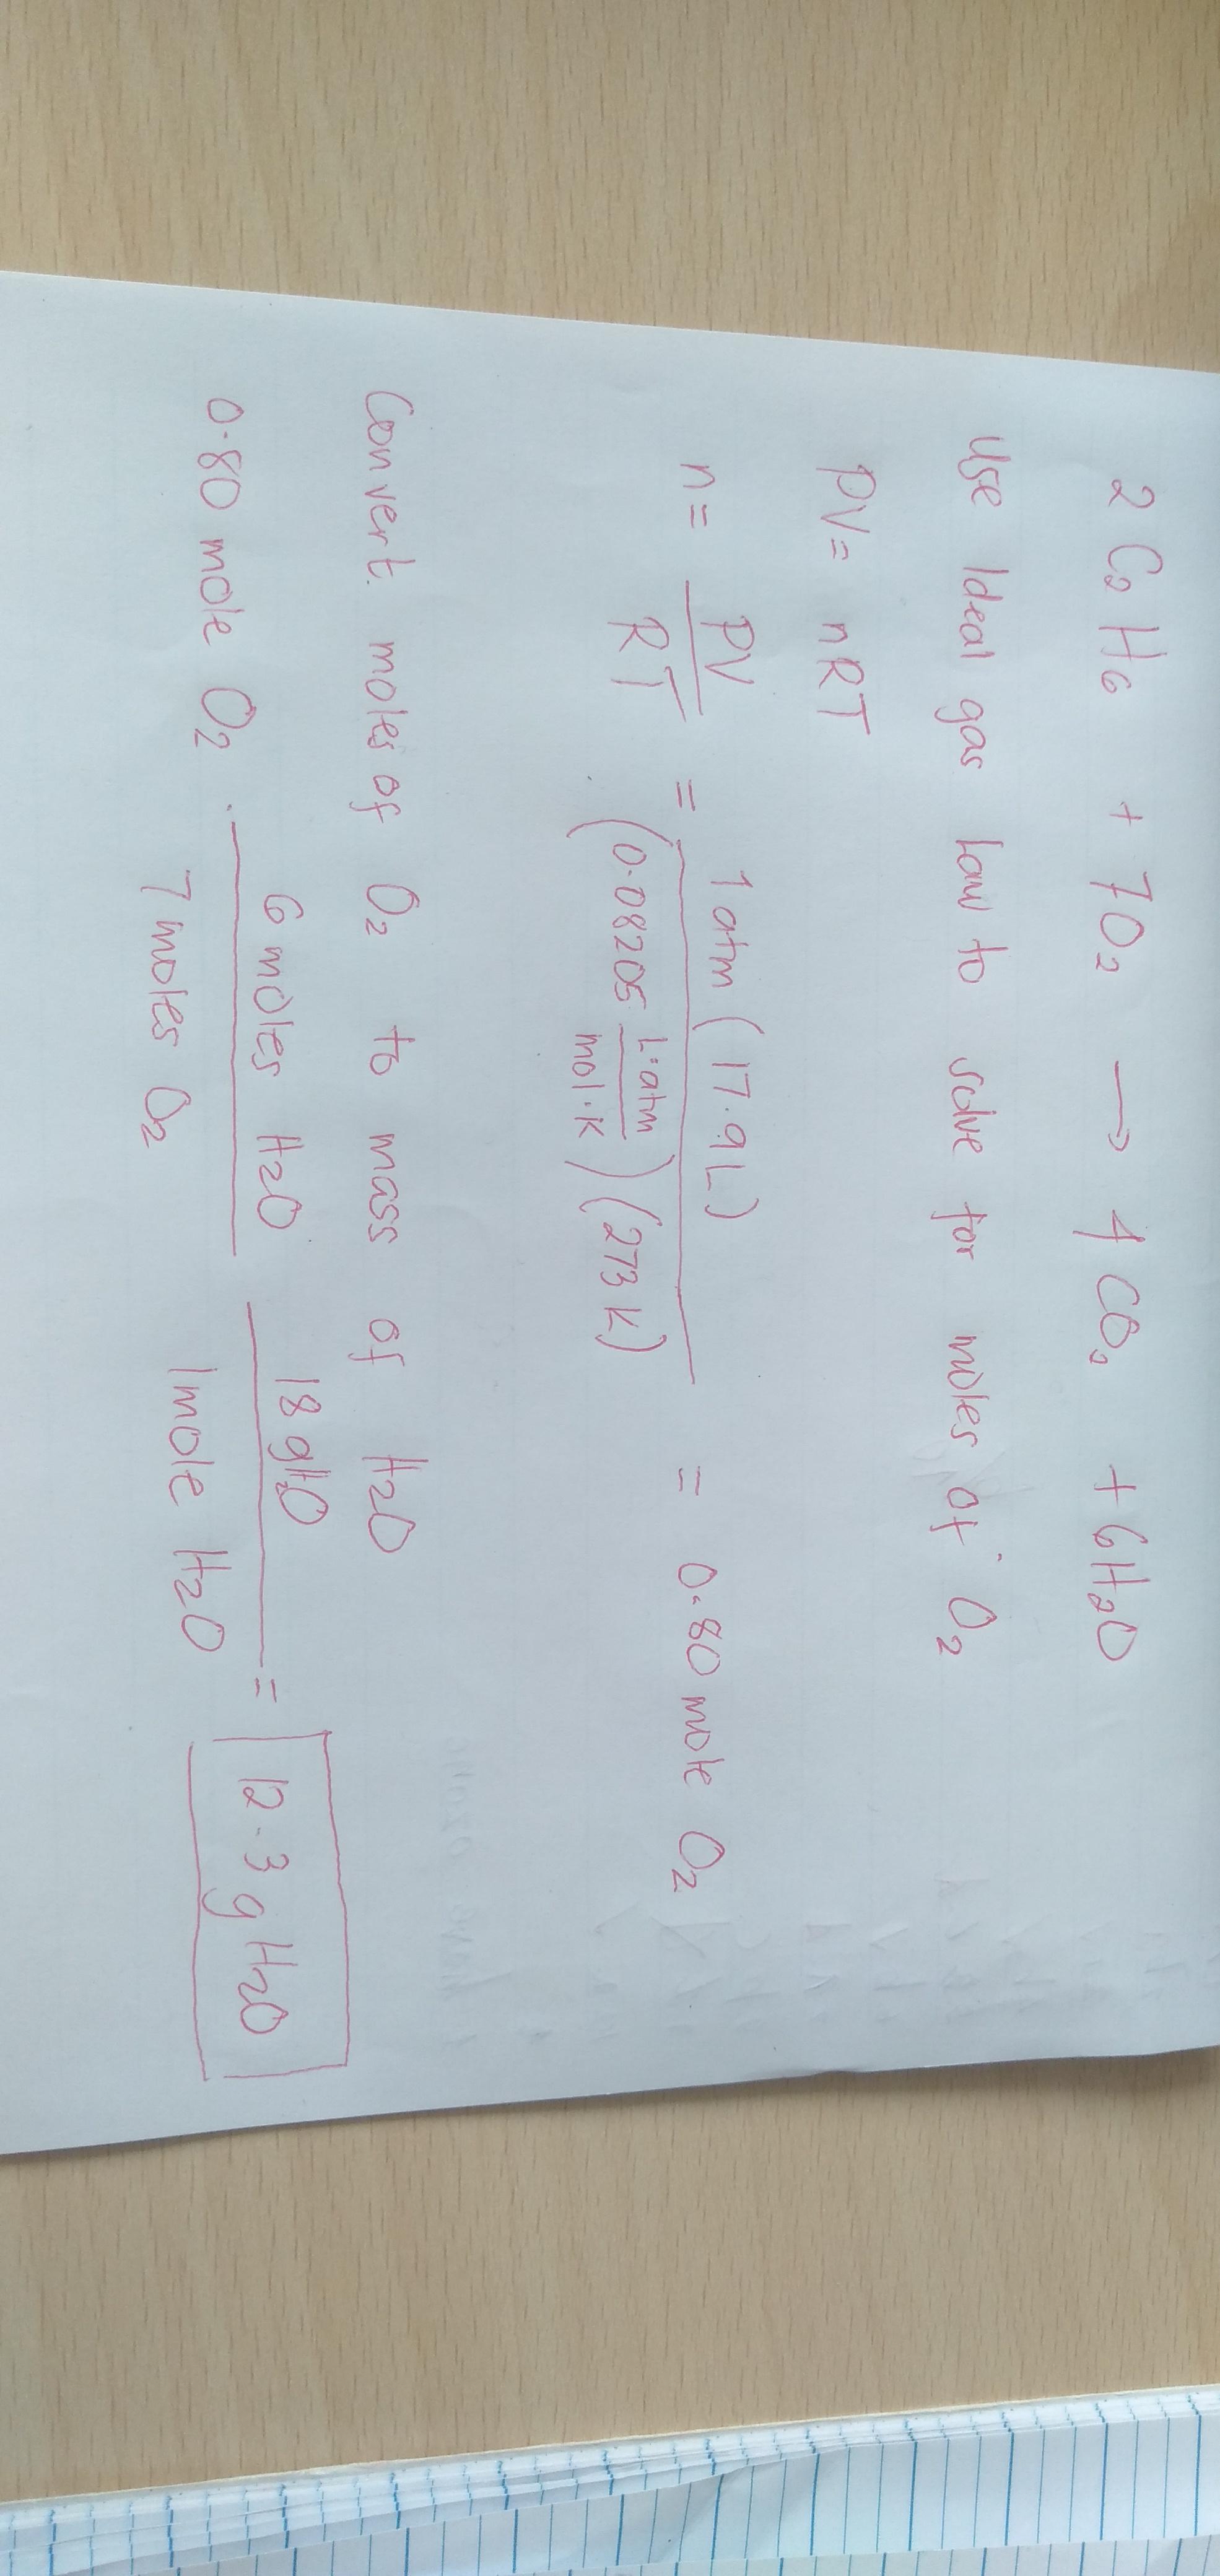 2 C2H6 + 7O2 → 4 CO2 + 6H2O
Use Ideal gas law to solve for moles of O2
PV = nRT
n = PV/RT = 1 atm (17.9L) / (0.08205 L·atm/mol·K) (273 K) = 0.80 mole O2
Convert moles of O2 to mass of H2O
0.80 mole O2 · 6 moles H2O / 7 moles O2 18 g H2O / 1 mole H2O = 12.3 g H2O